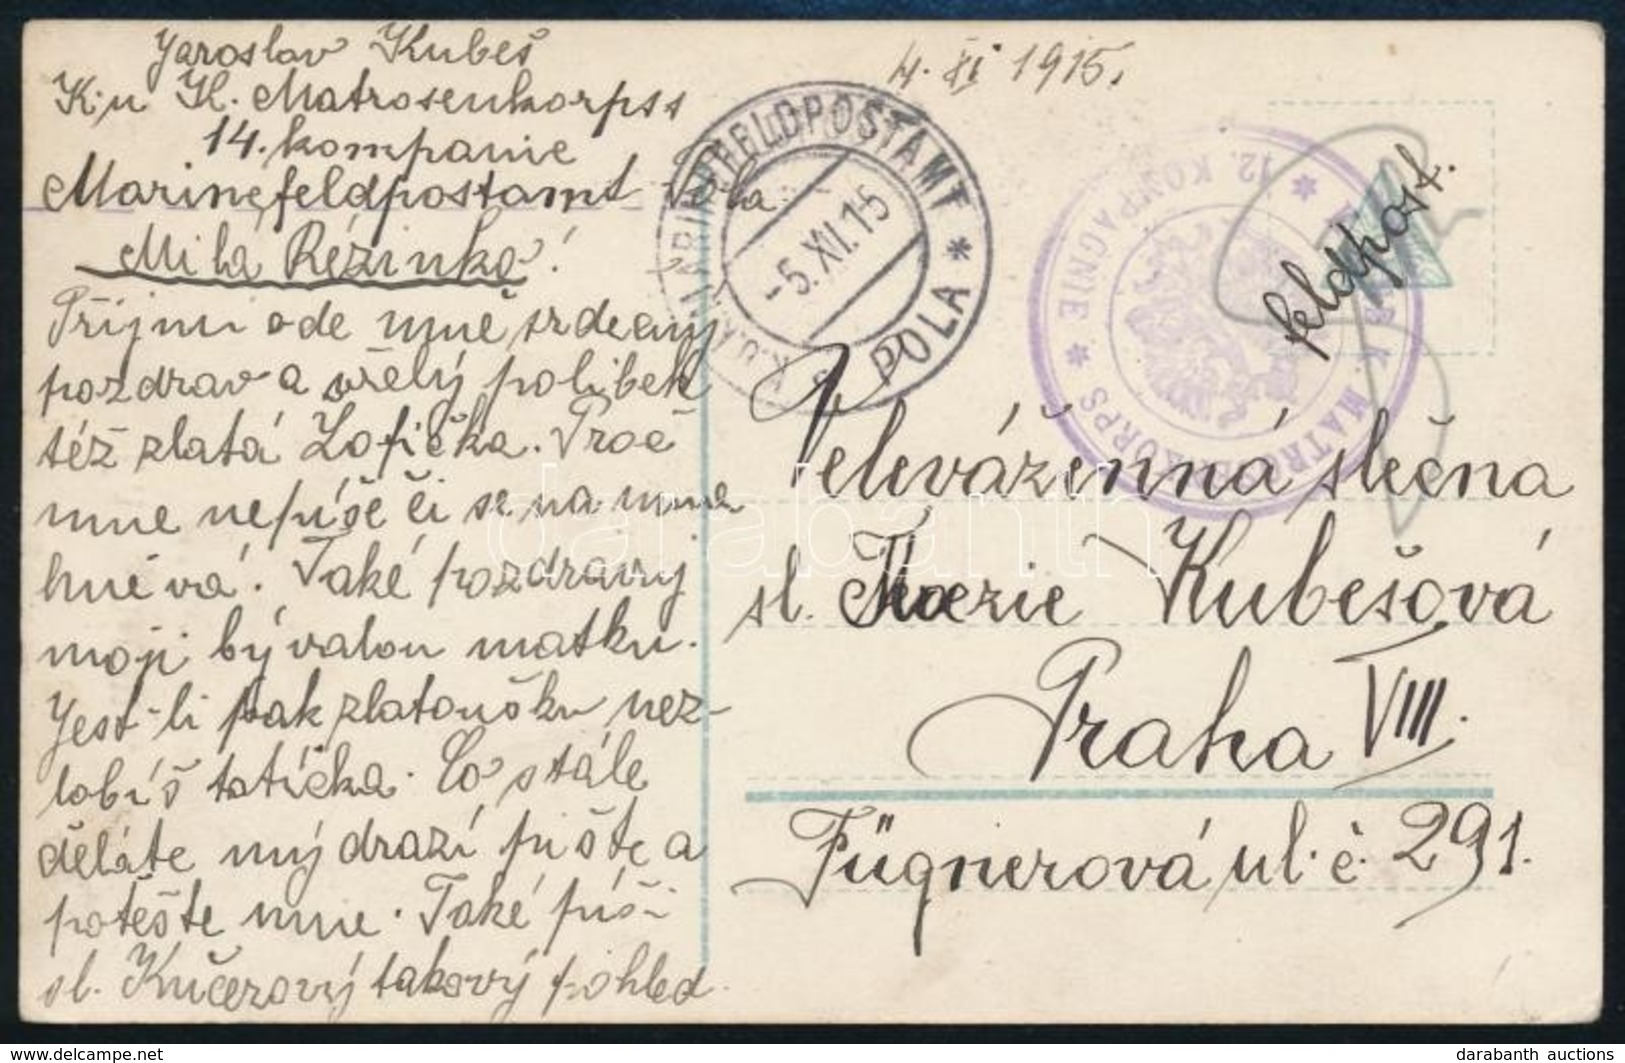 Jaroslav Kubeš
K. u K. Matrosenkorpss
14. kompanie
Marinefeldpostamt Pola.
Milá Rézinko!
Přijmi ode mne srdečný
pozdrav a vřelý polibek
též zlatá Žofička. Proč
mne nepíše či se na mne
hněvá. Také pozdravuj
moji bývalou matku.
Jest-li pak zlatoušku nez-
lobíš tatíčka. Co stále
děláte mý drazí pište a
potěšte mne. Také píši
sl. Kučerový takový pohled.
4. XI 1915.
K.U.K. MARINEFELDPOSTAMT * POLA *
-5.XI.15
K. MATROSENKORPS * 12. KOMPAGNIE *
feldpost.
Velevážená slečna
sl. Kubešová
Praha VIII.
Fügnerová ul. č. 291.
darabanth
darabanth auctions